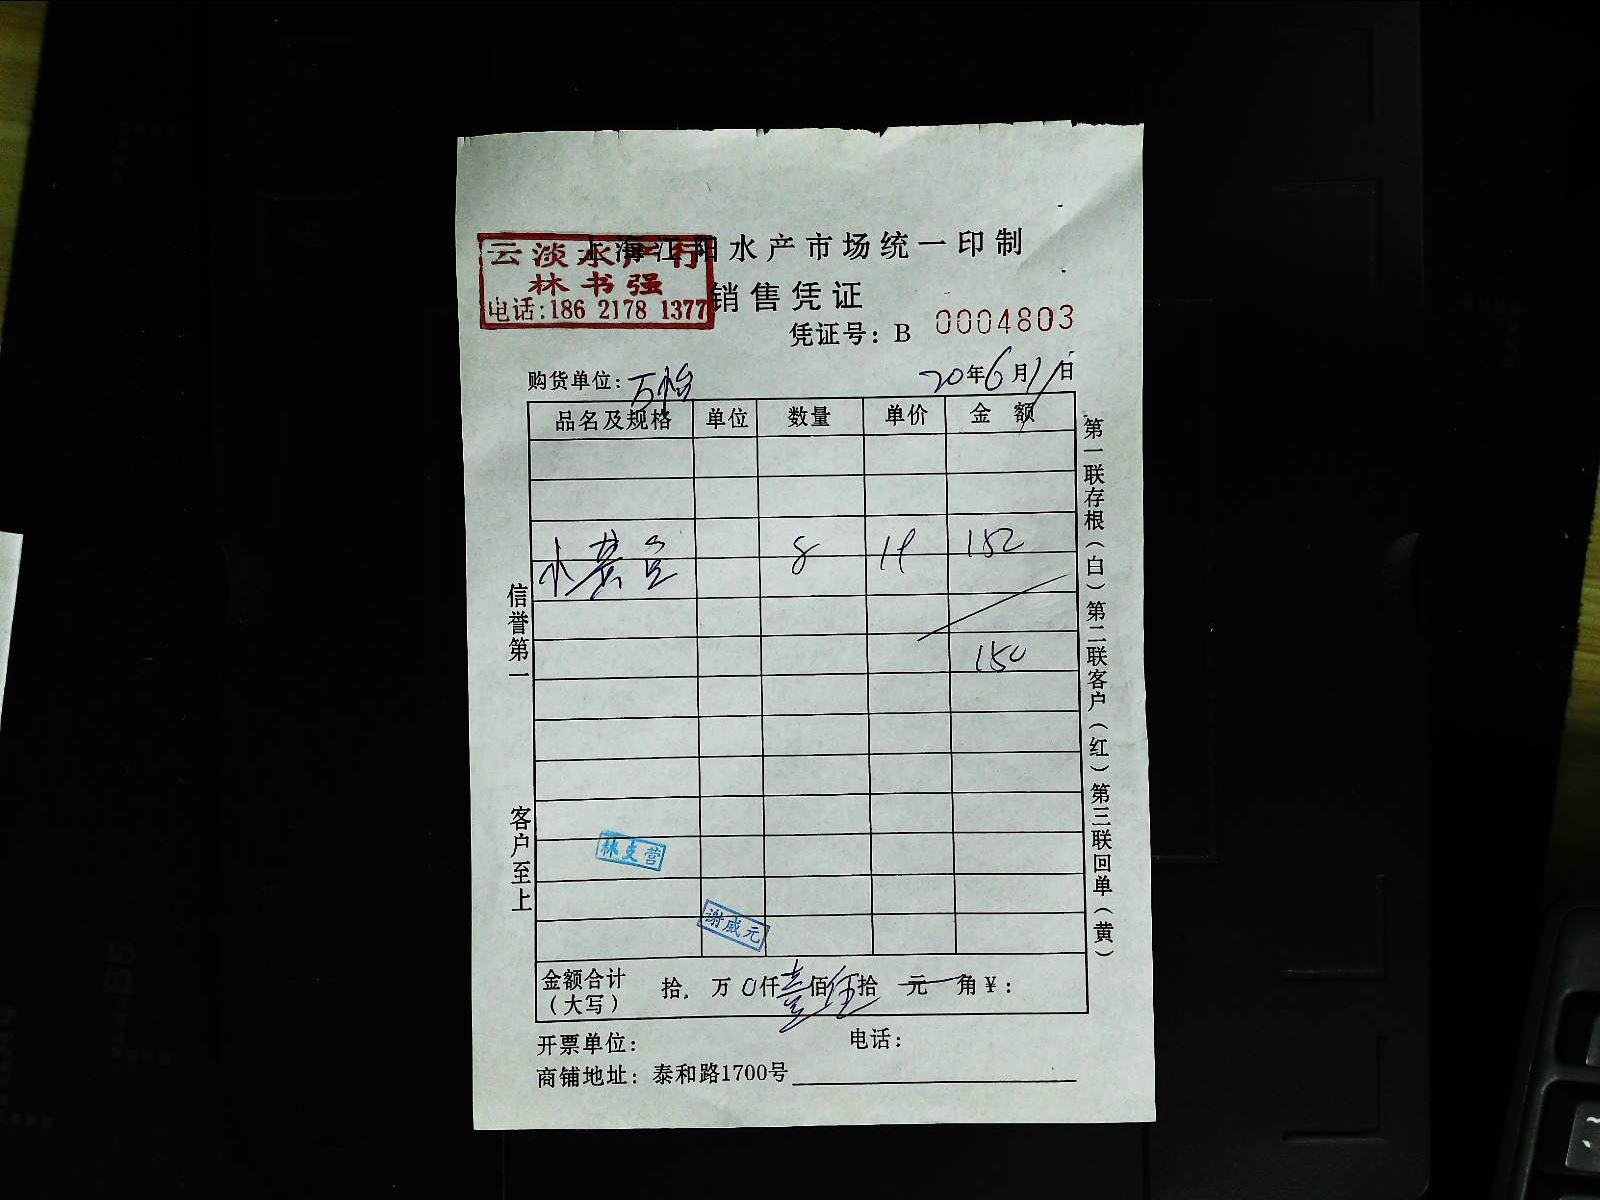 上海江阳水产市场统一印制
云淡水产行
林书强
电话:186 2178 1377
销售凭证
凭证号: B 0004803
购货单位: 万怡
20年6月11日
品名及规格 单位 数量 单价 金 额
8 19 152
150
信誉第一
客户至上
林支营
谢威元
第一联存根(白)第二联客户(红)第三联回单(黄)
金额合计(大写) 拾 万 0仟壹佰伍拾 元 角¥:
开票单位: 电话:
商铺地址: 泰和路1700号